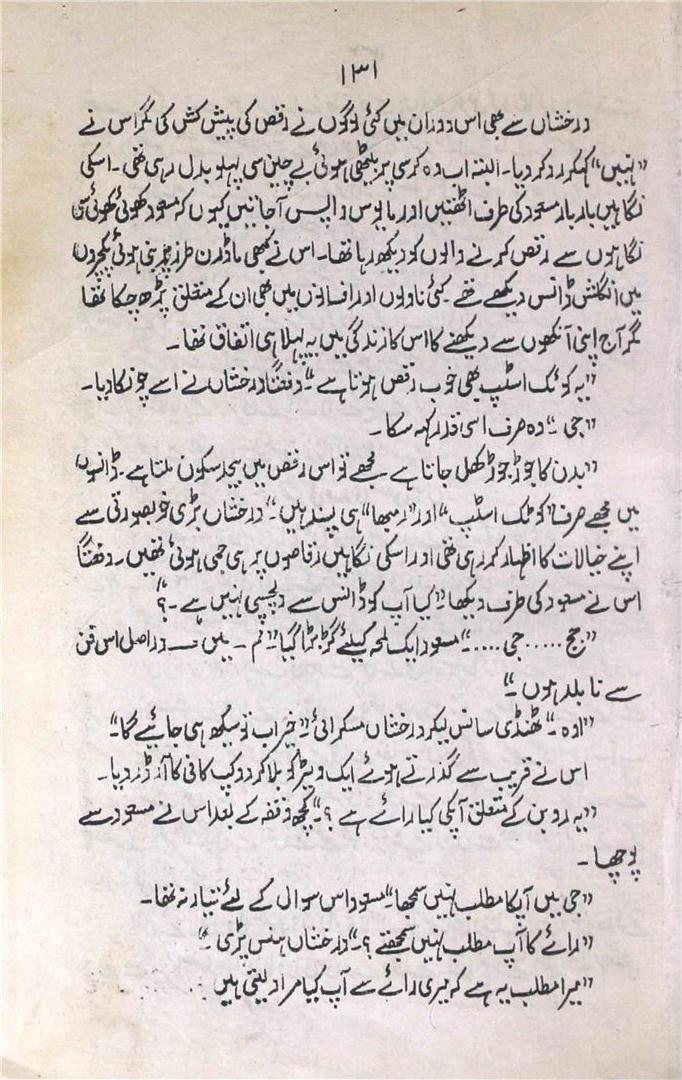 ۱۳۱
درخشاں سے بھی اس دوران میں کئی لوگوں نے رقص کی پیش کش کی مگر اس نے
”نہیں“ کہکر رد کر دیا۔ البتہ اب وہ کرسی پر بیٹھی ہوئی بے چین سی پہلو بدل رہی تھی۔ اسکی
نگاہیں بار بار مسعود کی طرف اٹھتیں اور مایوس واپس آجاتیں کیوں کہ مسعود کھوئی کھوئی سی
نگاہوں سے رقص کرنے والوں کو دیکھ رہا تھا۔ اس نے کبھی ماڈرن طرز پر بنی ہوئی پکچروں
میں انگلش ڈانس دیکھے تھے۔ کئی ناولوں اور افسانوں میں بھی ان کے متعلق پڑھ چکا تھا
مگر آج اپنی آنکھوں سے دیکھنے کا اس کا زندگی میں یہ پہلا ہی اتفاق تھا۔
”یہ کوئک اسٹپ بھی خوب رقص ہوتا ہے“۔ دفعتاً درخشاں نے اسے چونکا دیا۔
”جی“۔ وہ صرف اسی قدر کہہ سکا۔
”بدن کا جوڑ جوڑ کھل جاتا ہے مجھے تو اس رقص میں بیحد سکون ملتا ہے۔ ڈانسوں
میں مجھے صرف ”کوئک اسٹپ“ اور ”رمبھا“ ہی پسند ہیں“۔ درخشاں بڑی خوبصورتی سے
اپنے خیالات کا اظہار کر رہی تھی اور اسکی نگاہیں رقاصوں پر ہی جمی ہوئی تھیں۔ دفعتاً
اس نے مسعود کی طرف دیکھا ”کیا آپ کو ڈانس سے دلچسپی نہیں ہے۔“؟
”جج ..... جی ....“۔ مسعود ایک لمحہ کیلئے گڑبڑا گیا ”م۔ میں — دراصل اس فن
سے نابلد ہوں۔“
”اوہ۔“ ٹھنڈی سانس لیکر درخشاں مسکرائی ”خیر اب تو سیکھ ہی جائیے گا“۔
اس نے قریب سے گذرتے ہوئے ایک ویٹر کو بلا کر دو کپ کافی کا آرڈر دیا۔
”پروین کے متعلق آپکی کیا رائے ہے؟“۔ کچھ وقفہ کے بعد اس نے مسعود سے
پوچھا۔
”جی میں آپکا مطلب نہیں سمجھا“۔ مسعود اس سوال کے لئے تیار نہ تھا۔
”رائے کا آپ مطلب نہیں سمجھتے؟“۔ درخشاں ہنس پڑی۔“
”میرا مطلب یہ ہے کہ میری رائے سے آپ کیا مراد لیتی ہیں